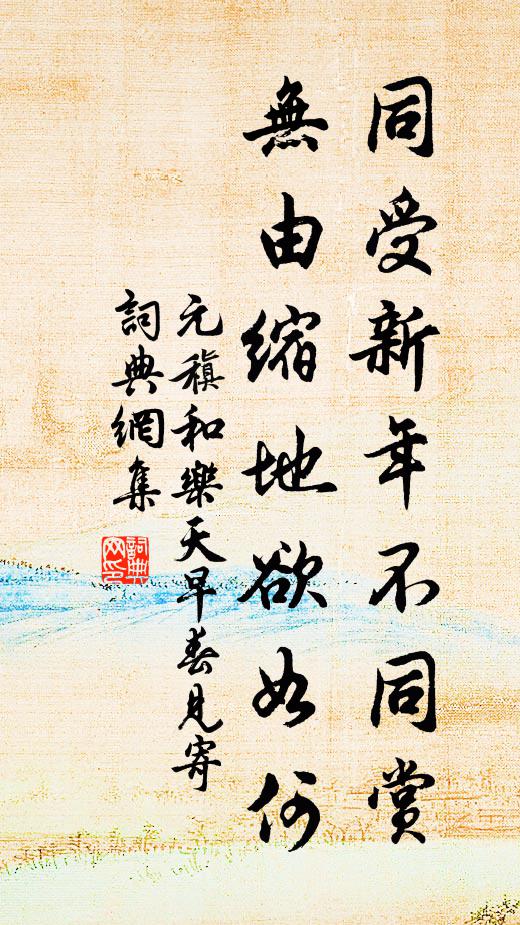 同受新年不同赏
無由缩地欲如何
元稹和樂天早春見寄
詞典網集
詞典
网印